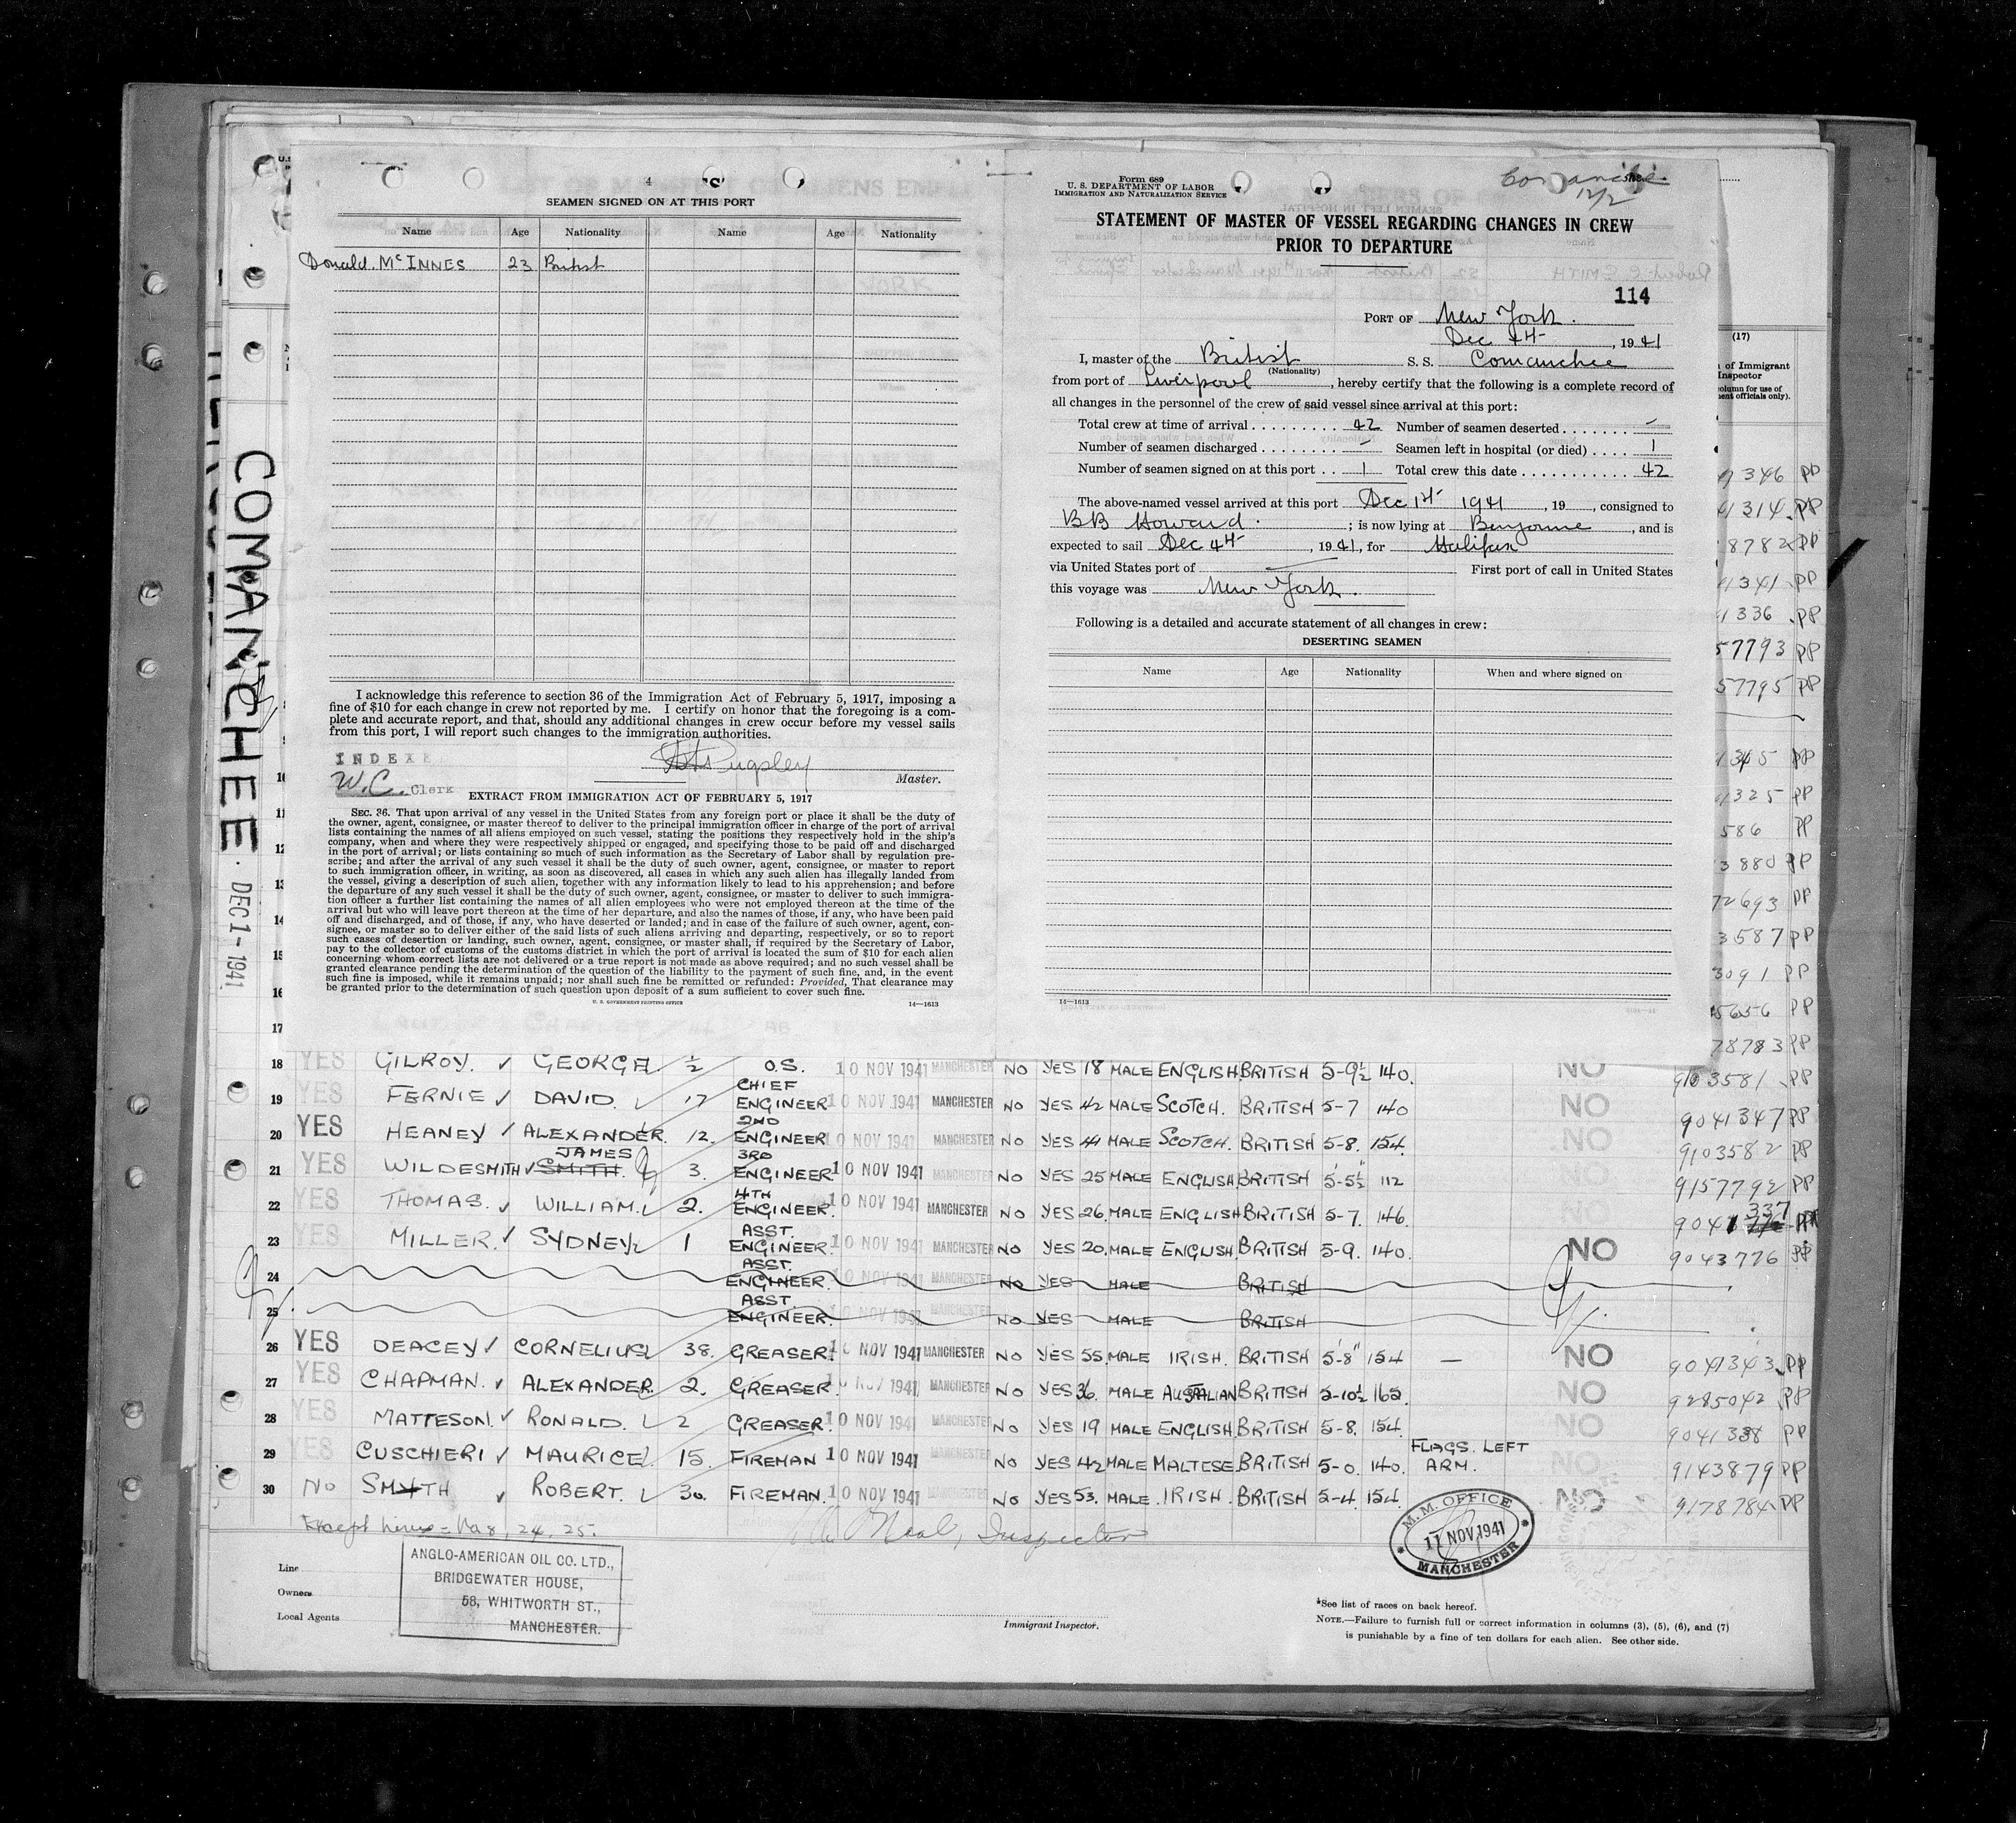 4
SEAMEN SIGNED ON AT THIS PORT
Name Age Nationality Name Age Nationality
Donald McINNES 23 British
I acknowledge this reference to section 36 of the Immigration Act of February 5, 1917, imposing a
fine of $10 for each change in crew not reported by me. I certify on honor that the foregoing is a com-
plete and accurate report, and that, should any additional changes in crew occur before my vessel sails
from this port, I will report such changes to the immigration authorities.
INDEXE
W.C. Clerk
Pugsley
Master.
EXTRACT FROM IMMIGRATION ACT OF FEBRUARY 5, 1917
SEC. 36. That upon arrival of any vessel in the United States from any foreign port or place it shall be the duty of
the owner, agent, consignee, or master thereof to deliver to the principal immigration officer in charge of the port of arrival
lists containing the names of all aliens employed on such vessel, stating the positions they respectively hold in the ship's
company, when and where they were respectively shipped or engaged, and specifying those to be paid off and discharged
in the port of arrival; or lists containing so much of such information as the Secretary of Labor shall by regulation pre-
scribe; and after the arrival of any such vessel it shall be the duty of such owner, agent, consignee, or master to report
to such immigration officer, in writing, as soon as discovered, all cases in which any such alien has illegally landed from
the vessel, giving a description of such alien, together with any information likely to lead to his apprehension; and before
the departure of any such vessel it shall be the duty of such owner, agent, consignee, or master to deliver to such immigra-
tion officer a further list containing the names of all alien employees who were not employed thereon at the time of the
arrival but who will leave port thereon at the time of her departure, and also the names of those, if any, who have been paid
off and discharged, and of those, if any, who have deserted or landed; and in case of the failure of such owner, agent, con-
signee, or master so to deliver either of the said lists of such aliens arriving and departing, respectively, or so to report
such cases of desertion or landing, such owner, agent, consignee, or master shall, if required by the Secretary of Labor,
pay to the collector of customs of the customs district in which the port of arrival is located the sum of $10 for each alien
concerning whom correct lists are not delivered or a true report is not made as above required; and no such vessel shall be
granted clearance pending the determination of the question of the liability to the payment of such fine, and, in the event
such fine is imposed, while it remains unpaid; nor shall such fine be remitted or refunded: Provided, That clearance may
be granted prior to the determination of such question upon deposit of a sum sufficient to cover such fine.
U. S. GOVERNMENT PRINTING OFFICE 14—1613
Form 689
U. S. DEPARTMENT OF LABOR
IMMIGRATION AND NATURALIZATION SERVICE
12/2
STATEMENT OF MASTER OF VESSEL REGARDING CHANGES IN CREW
PRIOR TO DEPARTURE
114
PORT OF New York.
Dec 4th, 1941
I, master of the British S. S. Comanchee
(Nationality)
from port of Liverpool, hereby certify that the following is a complete record of
all changes in the personnel of the crew of said vessel since arrival at this port:
Total crew at time of arrival . . . . . . . . . 42 Number of seamen deserted . . . . . . . —
Number of seamen discharged . . . . . . . . — Seamen left in hospital (or died) . . . . 1
Number of seamen signed on at this port . . 1 Total crew this date . . . . . . . . . . . 42
The above-named vessel arrived at this port Dec 1st 1941, 19, consigned to
BB Howard; is now lying at Bayonne, and is
expected to sail Dec 4th, 1941, for Halifax
via United States port of — First port of call in United States
this voyage was New York.
Following is a detailed and accurate statement of all changes in crew:
DESERTING SEAMEN
Name Age Nationality When and where signed on
14—1613
COMANCHEE. DEC 1-1941
(17)
of Immigrant
Inspector
column for use of
officials only).
346 PP
1314 PP
8782 PP
1341 PP
1336 PP
57793 PP
57795 PP
1345 PP
1325 PP
586 PP
3880 PP
72693 PP
3587 PP
3091 PP
5656 PP
78783 PP
10
11
12
13
14
15
16
17
18 YES GILROY. GEORGE ½ O.S. 10 NOV 1941 MANCHESTER NO YES 18 MALE ENGLISH BRITISH 5-9½ 140. NO 9103581 PP
19 YES FERNIE DAVID. 17 CHIEF ENGINEER 10 NOV 1941 MANCHESTER NO YES 42 MALE SCOTCH. BRITISH 5-7 140 NO 9041347 PP
20 YES HEANEY ALEXANDER. 12. 2ND ENGINEER 10 NOV 1941 MANCHESTER NO YES 41 MALE SCOTCH. BRITISH 5-8. 154. NO 9103582 PP
21 YES WILDESMITH SMITH. JAMES 3. 3RD ENGINEER 10 NOV 1941 MANCHESTER NO YES 25 MALE ENGLISH BRITISH 5-5½ 112 NO 9157792 PP
22 YES THOMAS. WILLIAM. 2. 4TH ENGINEER. 10 NOV 1941 MANCHESTER NO YES 26. MALE ENGLISH BRITISH 5-7. 146. NO 9041 776 337 PP
23 YES MILLER. SYDNEY 1 ASST. ENGINEER. 10 NOV 1941 MANCHESTER NO YES 20. MALE ENGLISH BRITISH 5-9. 140. NO 9043776 PP
24 ASST. ENGINEER. 10 NOV 1941 MANCHESTER NO YES MALE BRITISH
25 ASST. ENGINEER. 10 NOV 1941 MANCHESTER NO YES MALE BRITISH
26 YES DEACEY CORNELIUS 38. GREASER. 10 NOV 1941 MANCHESTER NO YES 55. MALE IRISH. BRITISH 5-8" 154 — NO 9041343 PP
27 YES CHAPMAN. ALEXANDER. 2. GREASER. 10 NOV 1941 MANCHESTER NO YES 36. MALE AUSTRALIAN BRITISH 5-10½ 165. NO 9285042 PP
28 YES MATTESON. RONALD. 2 GREASER. 10 NOV 1941 MANCHESTER NO YES 19 MALE ENGLISH BRITISH 5-8. 154. NO 9041338 PP
29 YES CUSCHIERI MAURICE. 15. FIREMAN 10 NOV 1941 MANCHESTER NO YES 42 MALE MALTESE BRITISH 5-0. 140. FLAGS. LEFT ARM. NO 9143879 PP
30 NO SMYTH ROBERT. 30. FIREMAN. 10 NOV 1941 MANCHESTER NO YES 53. MALE. IRISH. BRITISH 5-4. 154. NO 9178784 PP
Except lines 24, 25. Inspector
Line
Owners
Local Agents
ANGLO-AMERICAN OIL CO. LTD.,
BRIDGEWATER HOUSE,
58, WHITWORTH ST.,
MANCHESTER.
Immigrant Inspector.
M. M. OFFICE
11 NOV 1941
MANCHESTER
*See list of races on back hereof.
NOTE.—Failure to furnish full or correct information in columns (3), (5), (6), and (7)
is punishable by a fine of ten dollars for each alien. See other side.